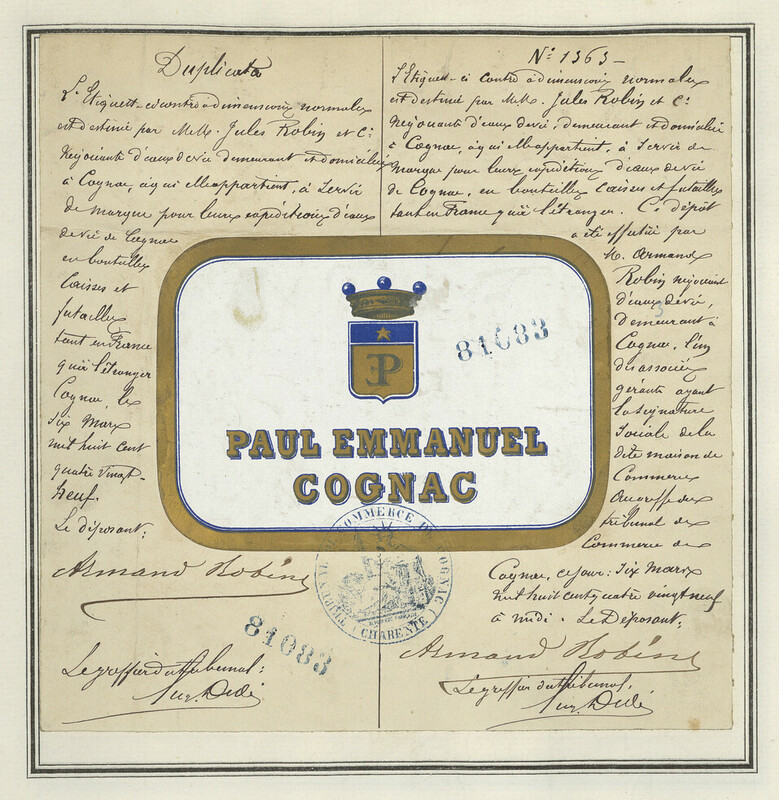 Duplicata
L'Etiquette ci contre à dimensions normales
est destiné par MM. Jules Robin et Cie
Négociants d'eaux de vie demeurant et domiciliés
à Cognac, à qui elle appartient, à servir
de marque pour leurs expéditions d'eaux
de vie de Cognac
en bouteilles
Caisses et
futailles
tant en France
qu'à l'étranger
Cognac le
six Mars
mil huit cent
quatre vingt-
neuf.
Le déposant:
Armand Robin
Le greffier du tribunal:
No 1363-
L'Etiquette ci contre à dimensions normales
est destiné par MM. Jules Robin et Cie
Négociants d'eaux de vie, demeurant et domiciliés
à Cognac, à qui elle appartient, à servir de
Marque pour leurs expéditions d'eaux de vie
de Cognac, en bouteilles caisses et futailles
tant en France qu'à l'étranger. Ce dépôt
a été effectué par
M. Armand
Robin négociant
d'eaux de vie,
demeurant à
Cognac, l'un
des associés
gérants ayant
la signature
sociale de la
dite maison de
Commerce
au greffe du
tribunal de
Commerce de
Cognac, ce jour: Six Mars
mil huit cent quatre vingt neuf
à midi. Le Déposant:
Armand Robin
Le greffier du tribunal,
EP
81083
PAUL EMMANUEL
COGNAC
TRIBUNAL DE COMMERCE DE COGNAC
CHARENTE
81083